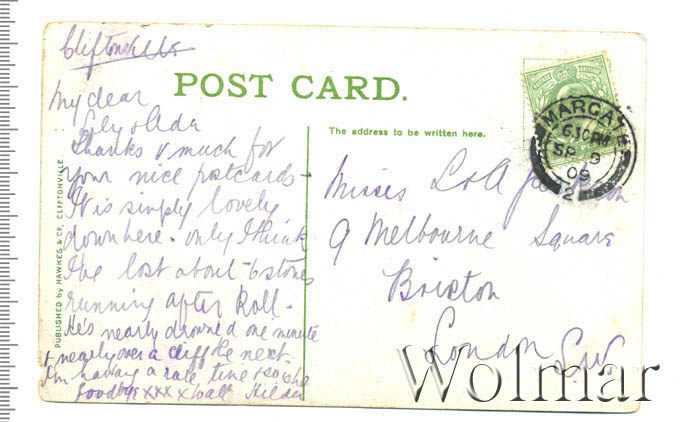 Cliftonville
POST CARD.
My dear
Lily & Ada
Thanks v much for
your nice postcards -
It is simply lovely
down here - only I think
I've lost about 6 stones
running after Roll -
He's nearly drowned one minute
& nearly over a cliff the next.
I'm having a rare time & so is he
Goodbye xxx x Walt Hilda
PUBLISHED by HAWKES & Co, CLIFTONVILLE
The address to be written here.
Misses L & A
9 Melbourne Square
Brixton
London SW
MARGATE
630PM
SP 9
09
2
Wolmar